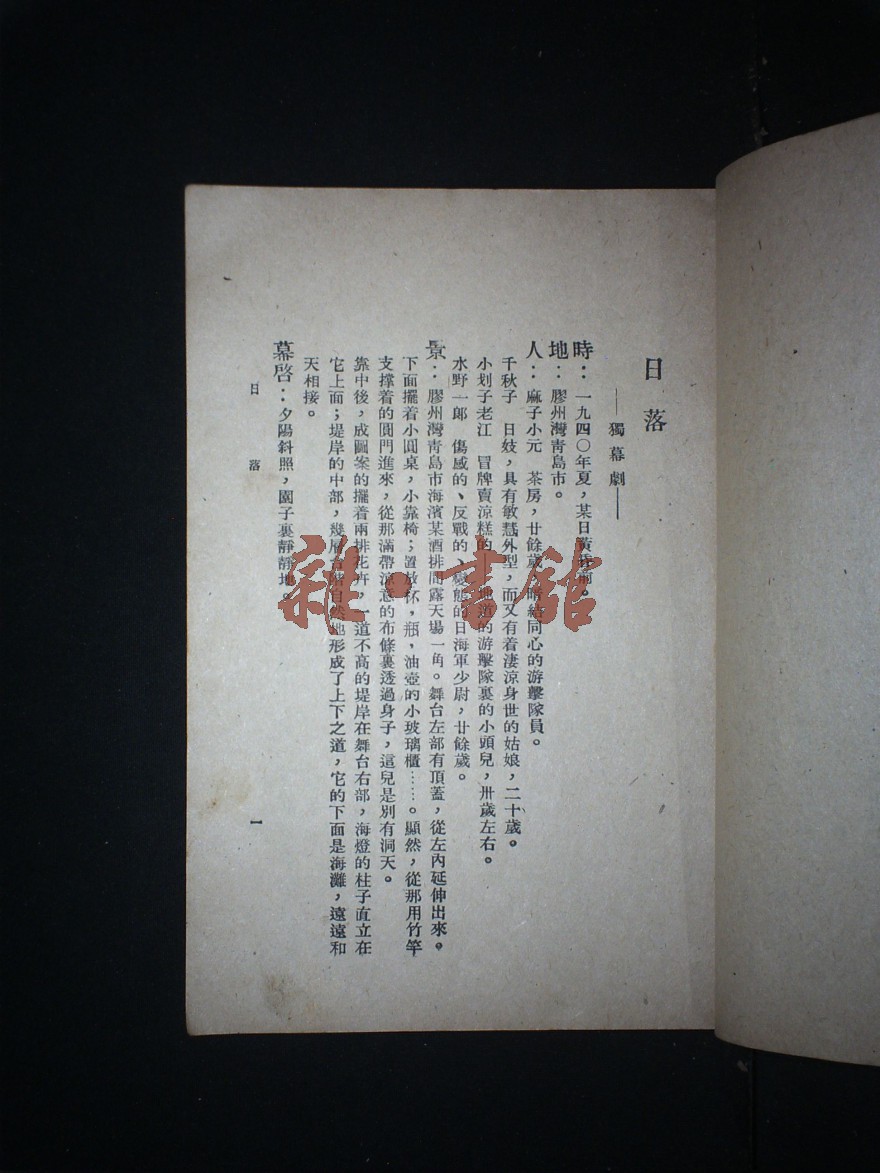 日落
——獨幕劇——
時：一九四〇年夏，某日黃昏前。
地：膠州灣靑島市。
人：麻子小元　茶房，廿餘歲，暗結同心的游擊隊員。
千秋子　日妓，具有敏慧外型，而又有着淒涼身世的姑娘，二十歲。
小划子老江　冒牌賣涼糕的，地道的游擊隊裏的小頭兒，卅歲左右。
水野一郞　傷感的、反戰的、變態的日海軍少尉，廿餘歲。
景：膠州灣靑島市海濱某酒排間露天場一角。舞台左部有頂蓋，從左內延伸出來。
下面擺着小圓桌，小靠椅；置放杯，瓶，油壺的小玻璃櫃……。顯然，從那用竹竿
支撐着的圓門進來，從那滿帶涼意的布條裏透過身子，這兒是別有洞天。
靠中後，成圖案的擺着兩排花卉，一道不高的堤岸在舞台右部，海燈的柱子直立在
它上面；堤岸的中部，幾層台階自然地形成了上下之道，它的下面是海灘，遠遠和
天相接。
幕啓：夕陽斜照，園子裏靜靜地。
日落
一
雜·書館